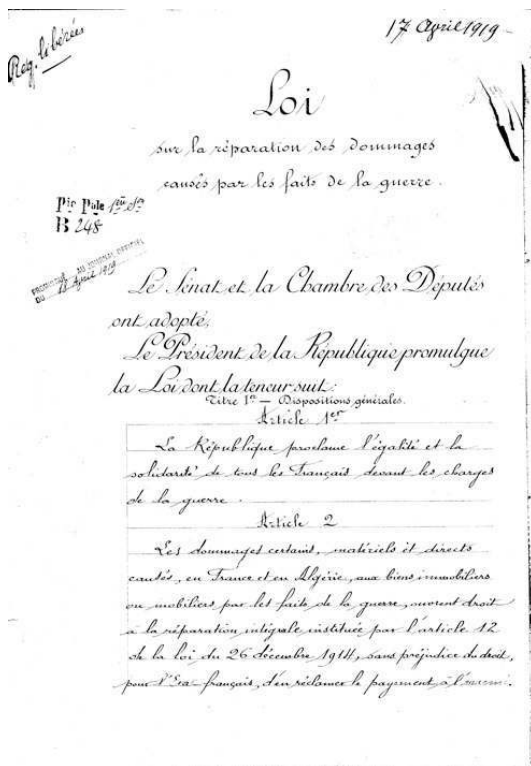 17 April 1919
Reg. libérées
Loi
sur la réparation des dommages
causés par les faits de la guerre.
B 248
PROMULGUÉ AU JOURNAL OFFICIEL
DU 18 April 1919
Le Sénat et la Chambre des Députés
ont adopté,
Le Président de la République promulgue
la Loi dont la teneur suit:
Titre Ier — Dispositions générales.
Article 1er
La République proclame l'égalité et la
solidarité de tous les Français devant les charges
de la guerre.
Article 2
Les dommages certains, matériels et directs
causés, en France et en Algérie, aux biens immobiliers
ou mobiliers par les faits de la guerre, ouvrent droit
à la réparation intégrale instituée par l'article 12
de la loi du 26 décembre 1914, sans préjudice du droit,
pour l'Etat français, d'en réclamer le payement à l'ennemi.